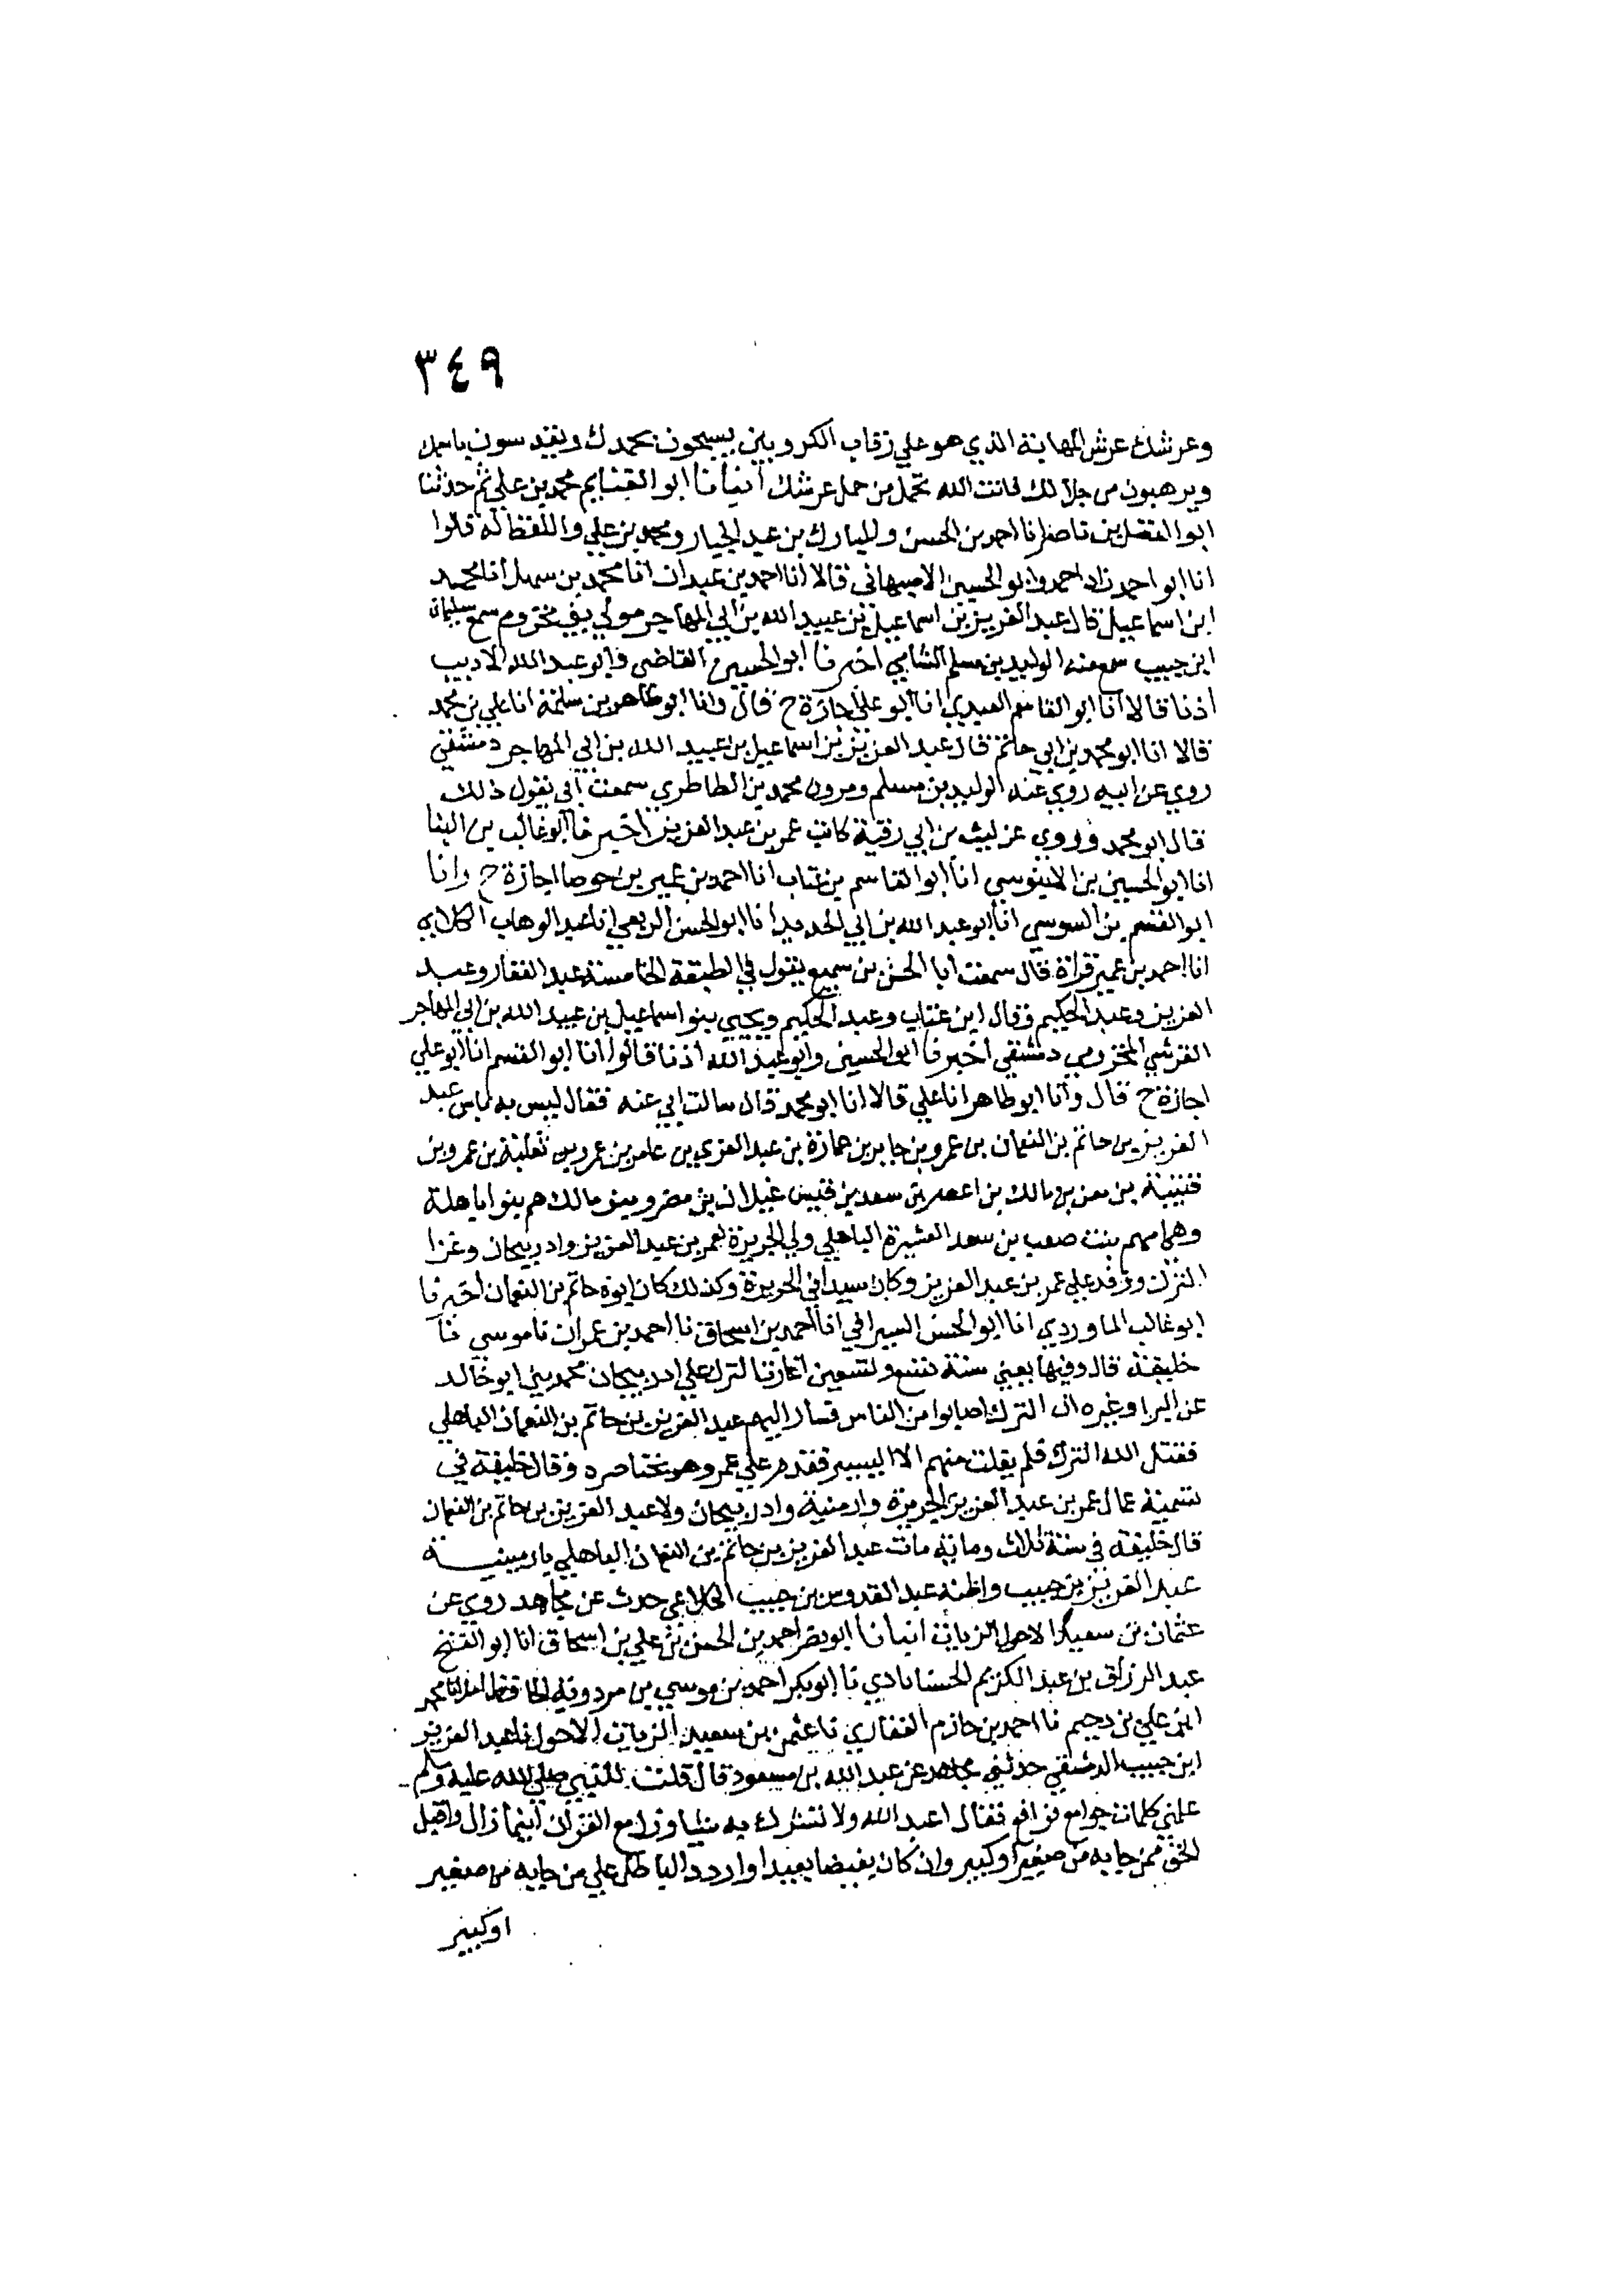 ٣٤٩
وعرشك عرش المهابة الذي هو علي رقاب الكروبين يسبحون بحمدك ويقدسون باسمك
ويرهبون من جلالك فانت الله تحمل من حمل عرشك انبانا ابو الغنايم محمد بن علي ثم حدثنا
ابو الفضل بن ناصر انا احمد بن الحسن والمبارك بن عبد الجبار ومحمد بن علي واللفظ له قالوا
انا ابو احمد زاد احمد وابو الحسين الاصبهاني قالا انا احمد بن عبدان انا محمد بن سهل انا محمد
ابن اسماعيل قال عبد العزيز بن اسماعيل بن عبيد الله بن ابي المهاجر مولي بني مخزوم سمع سليمان
ابن حبيب سمع منه الوليد بن مسلم الشامي اخبرنا ابو الحسين القاضي وابو عبد الله الاديب
اذنا قالا انا ابو القاسم العبدي انا ابو علي اجازة ح قال وانا ابو طاهر بن سلمة انا علي بن محمد
قالا انا ابو محمد بن ابي حاتم قال عبد العزيز بن اسماعيل بن عبيد الله بن ابي المهاجر دمشقي
روي عن ابيه روي عنه الوليد بن مسلم ومرون محمد بن الطاطري سمعت ابي يقول ذلك
قال ابو محمد وروي عن ليث بن ابي رقية كاتب عمر بن عبد العزيز اخبرنا ابو غالب بن البنا
انا ابو الحسين بن الابنوسي انا ابو القاسم بن عتاب انا احمد بن عمير بن حوصا اجازة ح وانا
ابو القسم بن السوسي انا ابو عبد الله بن ابي الحديد انا ابو الحسن الربعي انا عبد الوهاب الكلابي
انا احمد بن عمير قراة قال سمعت ابا الحسن بن سميع يقول في الطبقة الخامسة عبد الغفار وعبد
العزيز وعبد الحكيم وقال ابن عتاب وعبد الحكيم ويحيي بنو اسماعيل بن عبيد الله بن ابي المهاجر
القرشي المخزومي دمشقي اخبرنا ابو الحسين وابو عبد الله اذنا قالوا انا ابو القسم انا ابو علي
اجازة ح قال وانا ابو طاهر انا علي قالا انا ابو محمد قال سالت ابي عنه فقال ليس به باس عبد
العزيز بن حاتم بن النعمان بن عمرو بن جابر بن عمارة بن عبد العزي بن عامر بن عمرو بن ثعلبة بن عمرو بن
قتيبة بن معن بن مالك بن اعصر بن سعد بن قيس عيلان بن مضر وبنو مالك هم بنوا باهلة
وهي امهم بنت صعب بن سعد العشيرة الباهلي ولي الجزيرة لعمر بن عبد العزيز واذربيجان وغزا
الترك ووفد علي عمر بن عبد العزيز وكان سيدا في الجزيرة وكذلك كان ابوه حاتم بن النعمان اخبرنا
ابو غالب الماوردي انا ابو الحسن السيرافي انا احمد بن اسحاق نا احمد بن عمران نا موسي نا
خليفة قال وفيها يعني سنة تسع وتسعين اغارت الترك علي اذربيجان محمد بني ابو خالد
عن البرا وغيره ان الترك اصابوا من الناس فسار اليهم عبد العزيز بن حاتم بن النعمان الباهلي
فقتل الله الترك فلم يفلت منهم الا اليسير فقدم علي عمر وهو بخناصره وقال خليفة في
تسمية عمال عمر بن عبد العزيز الجزيرة وارمنية واذربيجان ولا عبد العزيز بن حاتم بن النعمان
قال خليفة في سنة ثلاث ومائة مات عبد العزيز بن حاتم بن النعمان الباهلي بارمينية
عبد العزيز بن حبيب واظنه عبد القدوس بن حبيب الكلاعي حدث عن مجاهد روي عن
عثمان بن سعيد الاحول الزيات انبانا ابو نصر احمد بن الحسن بن علي بن اسحاق انا ابو الفتح
عبد الرزاق بن عبد الكريم الحسنابادي نا ابو بكر احمد بن موسي بن مردويه الحافظ محمد
ابن علي بن دحيم نا احمد بن حازم الغفاري نا عثمن بن سعيد الزيات الاحول نا عبد العزيز
ابن حبيب الدمشقي حدثني مجاهد عن عبد الله بن مسعود قال قلت للنبي صلي الله عليه وسلم
علمني كلمات جوامع نوافع فقال اعبد الله ولا تشرك به شيا وزل مع القران اينما زال واقبل
الحق ممن جا به من صغير او كبير وان كان بغيضا بعيدا واردد الباطل علي من جا به من صغير
او كبير